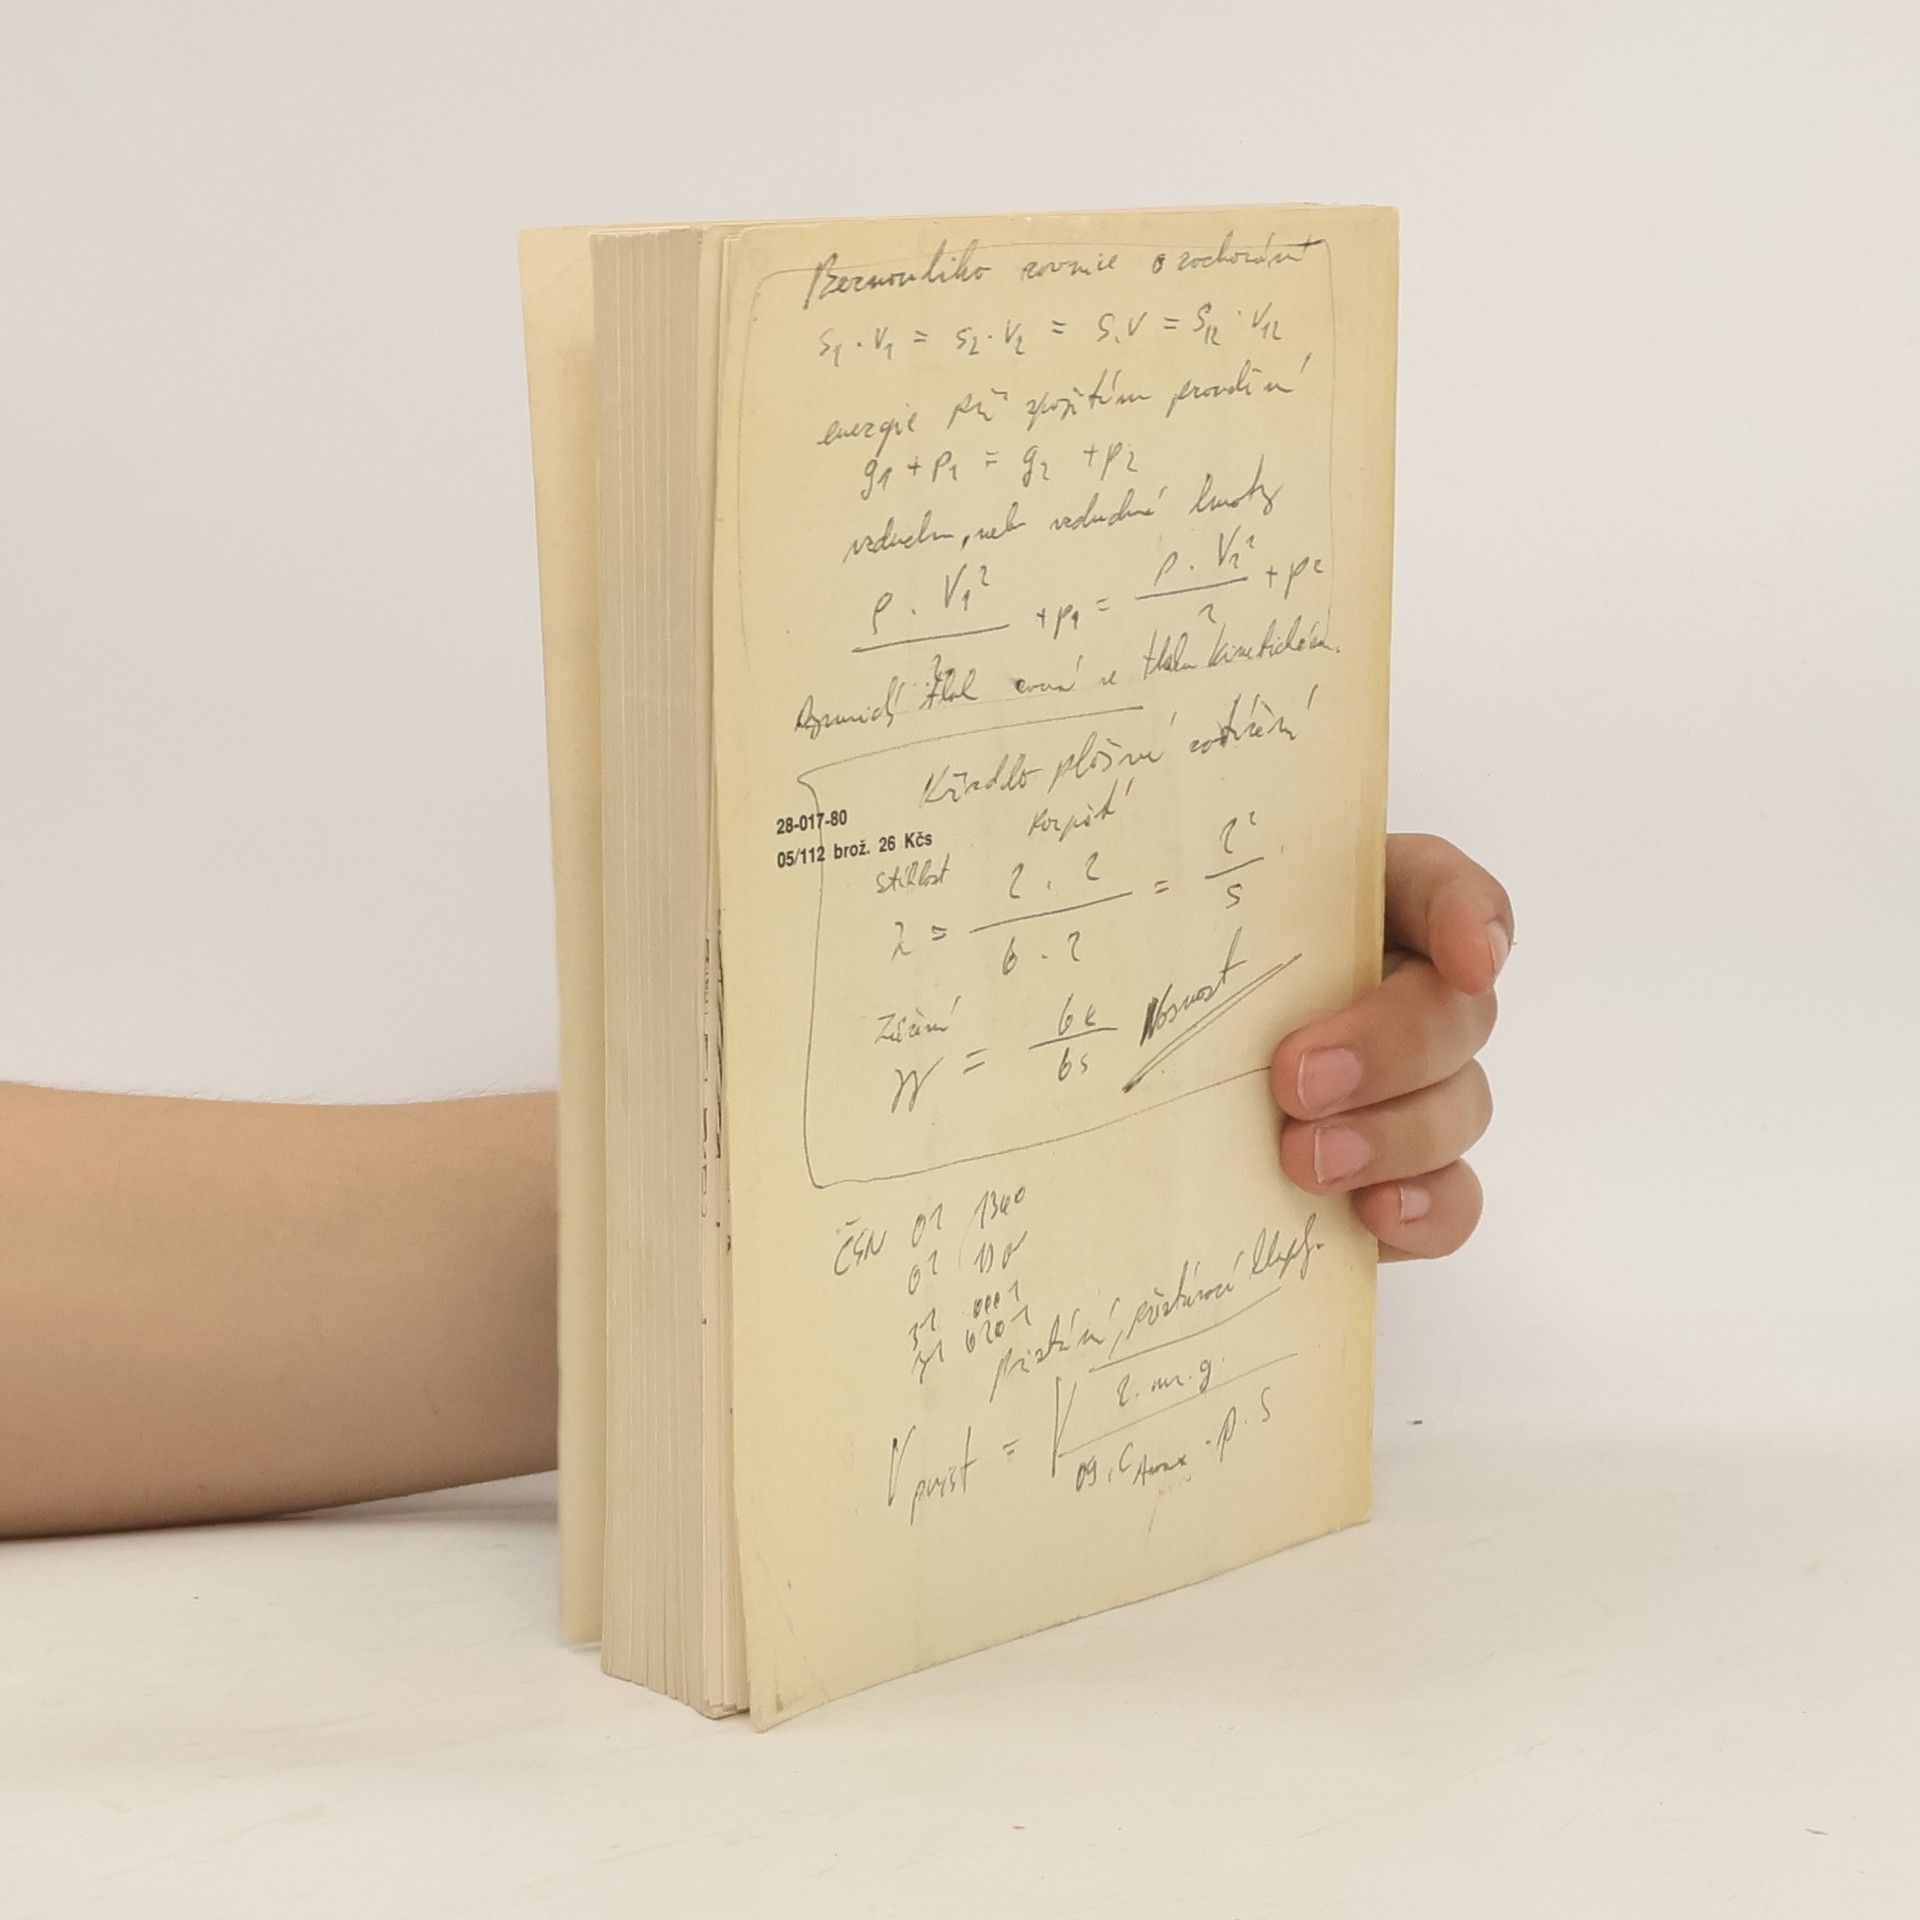 Bernouliho rovnice o zachování
S₁ · V₁ = S₂ · V₂ = S · V = S₁₂ · V₁₂
energie při spojitém proudění
q₁ + p₁ = q₂ + p₂
vzduchu, neb vzdušné hmoty
ρ · V₁² / 2 + p₁ = ρ · V₂² / 2 + p₂
Dynamický tlak se tlaku kinetickém.
Křídlo plošné zatížení
rozpětí
28-017-80
05/112 brož. 26 Kčs
štíhlost
λ = l · l / b · l = l² / S
Zúžení
= bk / bs Nosnost
ČSN 01 1340
01
31 0001
31 6201
přistání, přistávací
V přist = √ 2 · m · g / 09 · C Amax · ρ · S